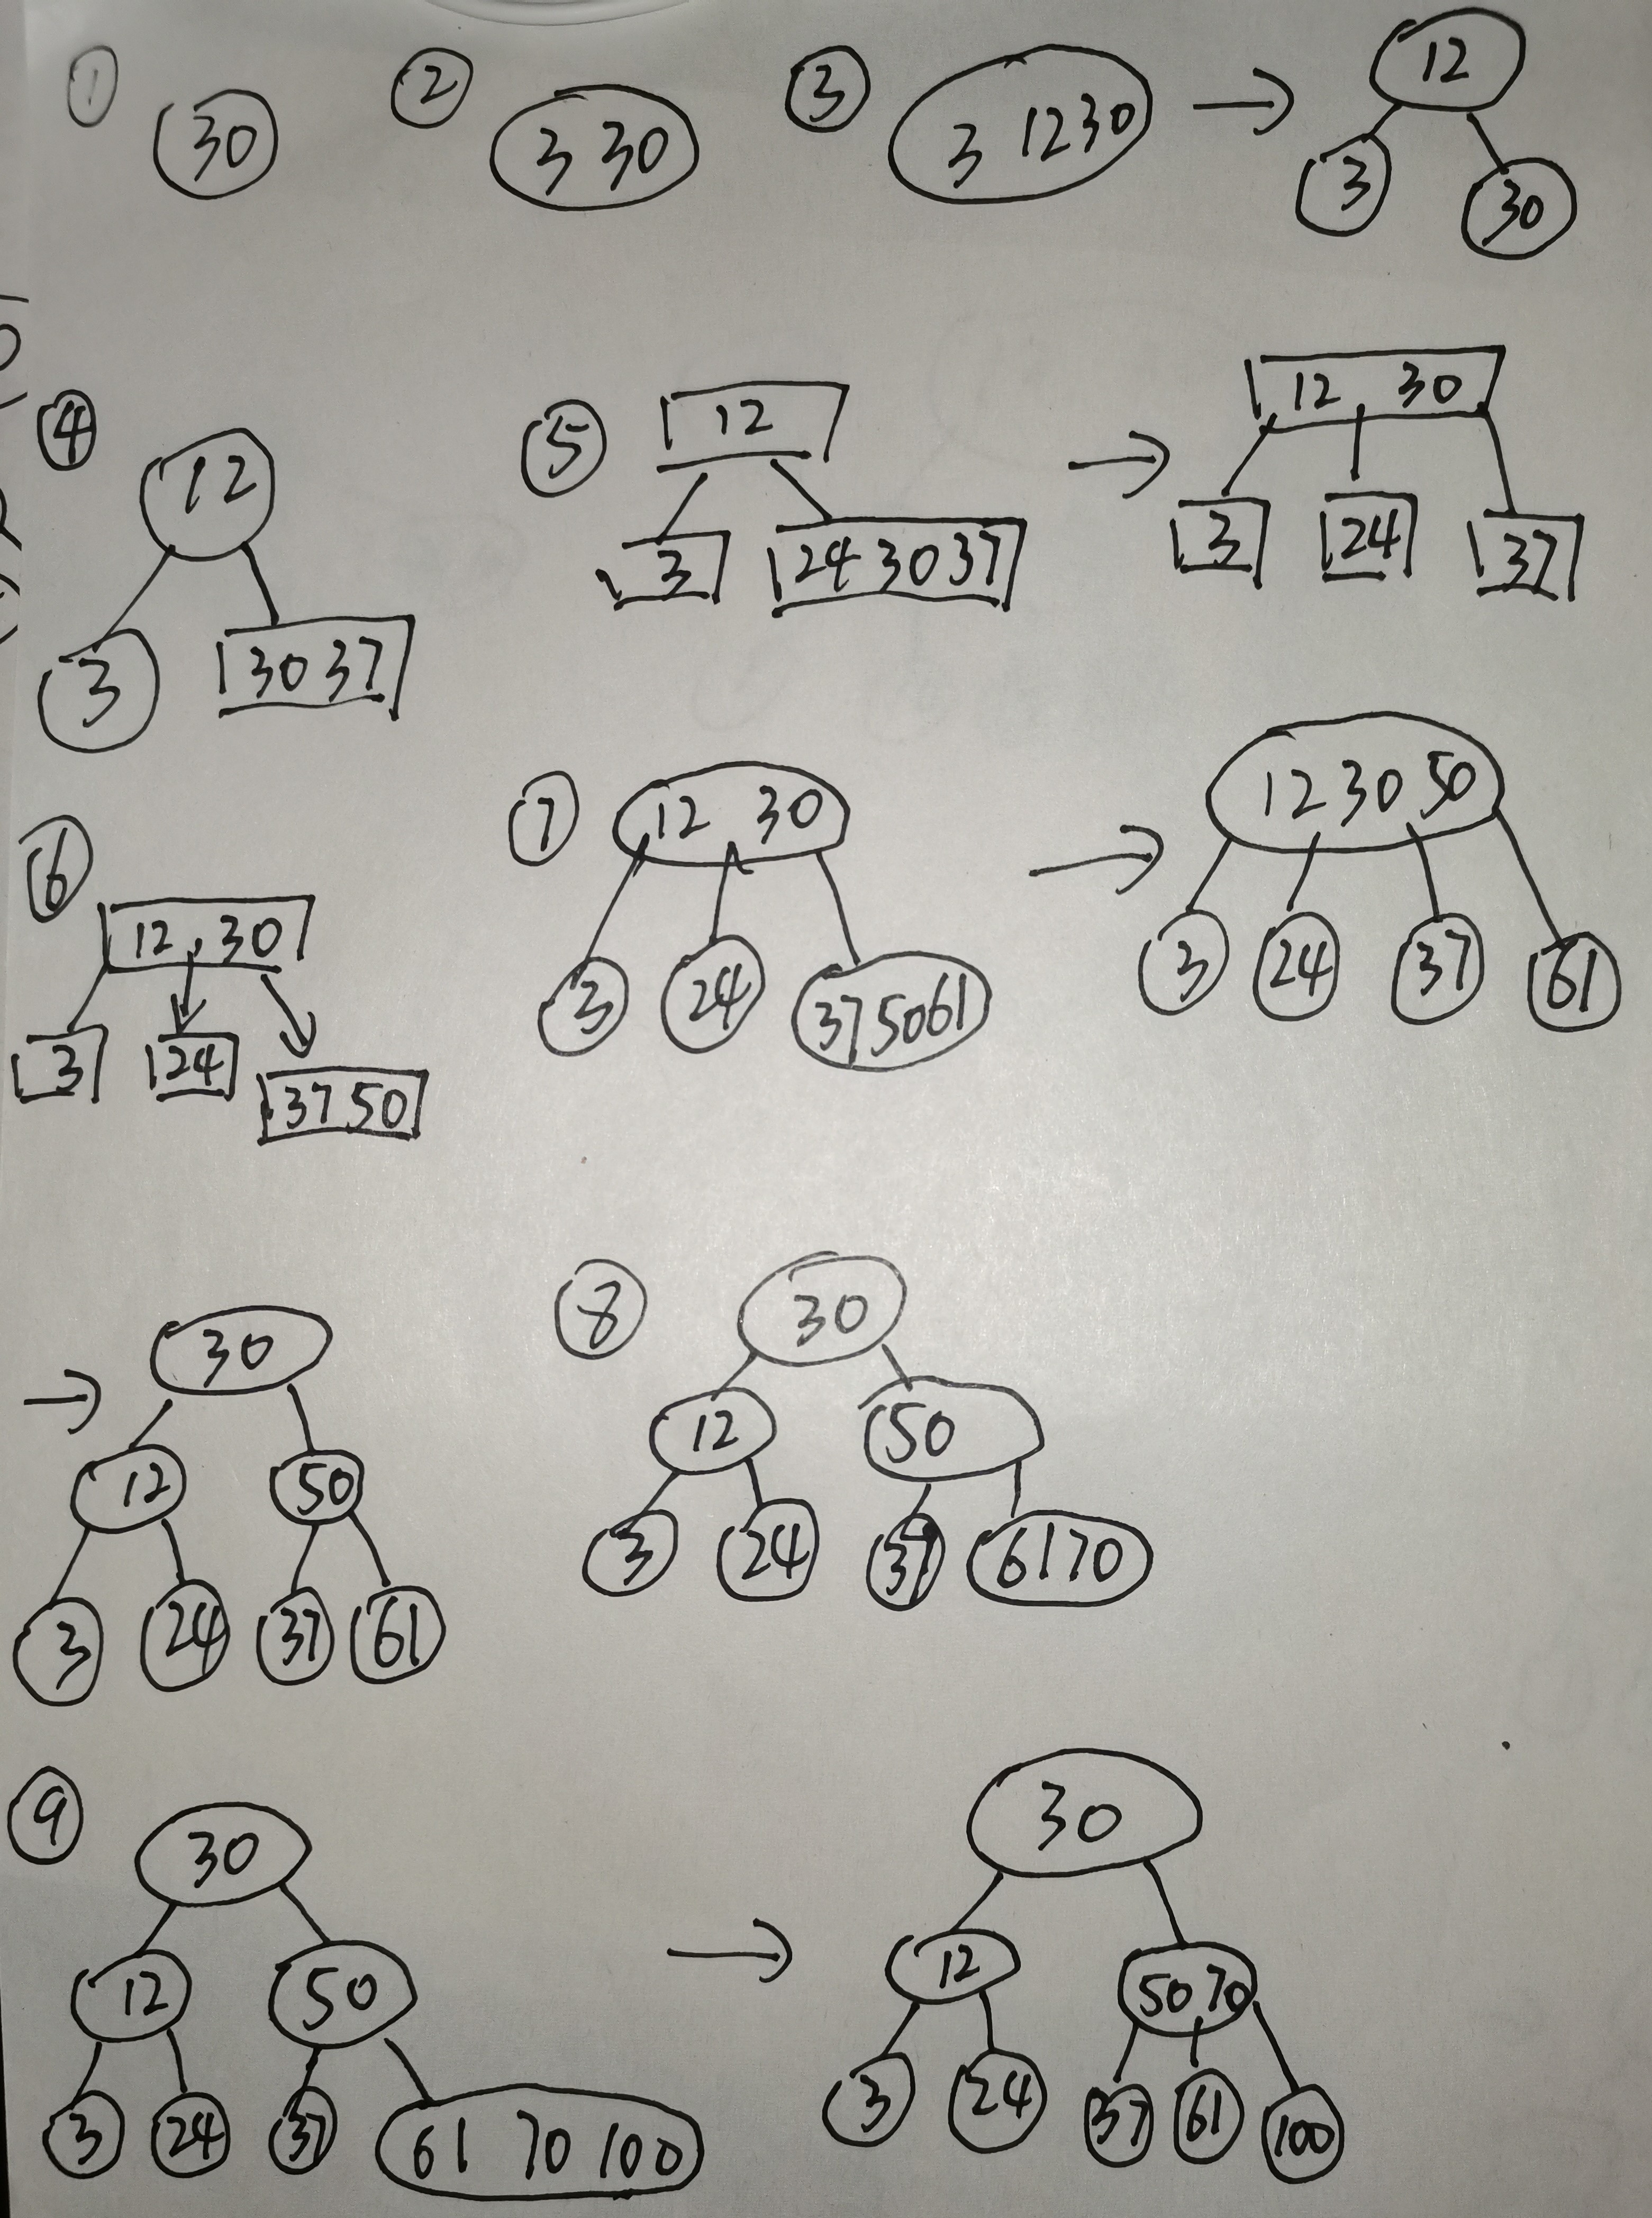 ① 30
② 3 30
③ 3 12 30 → 12
3 30
④ 12
3 30 37
⑤ 12
3 24 30 37
→ 12 30
3 24 37
⑥ 12 30
3 24 37 50
⑦ 12 30
3 24 37 50 61
→ 12 30 50
3 24 37 61
→ 30
12 50
3 24 37 61
⑧ 30
12 50
3 24 37 61 70
⑨ 30
12 50
3 24 37 61 70 100
→ 30
12 50 70
3 24 37 61 100